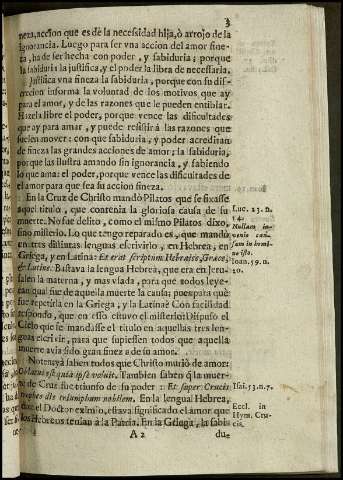 3
neza, accion que es de la necessidad hija, ò arrojo de la
ignorancia. Luego para ser vna accion del amor fine-
za, ha de ser hecha con poder, y sabiduria; porque
la sabiduria la justifica, y el poder la libra de necessaria.
Justifica vna fineza la sabiduria, porque con su dis-
crecion informa la voluntad de los motivos que ay
para el amor, y de las razones que le pueden entibiar.
Hazela libre el poder, porque vence las dificultades
que ay para amar, y puede resistir à las razones que
suelen mover: con que sabiduria, y poder acreditan
de fineza las grandes acciones de amor: la sabiduria,
porque las ilustra amando sin ignorancia, y sabiendo
lo que ama: el poder, porque vence las dificultades de
el amor para que sea su accion fineza.
En la Cruz de Christo mandò Pilatos que se fixasse
aquel titulo, que contenia la gloriosa causa de su
muerte. No fue delito, como el mismo Pilatos dixo,
sino misterio. Lo que tengo reparado es, que mandò
en tres distintas lenguas escrivirlo, en Hebrea, en
Griega, y en Latina: Et erat scriptum Hebraice, Græce,
& Latine. Bastava la lengua Hebrea, que era en Jeru-
salen la materna, y mas vlada, para que todos leye-
ran qual fue de aquella muerte la causa; pues para què
fue repetirla en la Griega, y la Latina? Con facilidad
respondo, que en esso estuvo el misterio: Dispuso el
Cielo que se mandasse el titulo en aquellas tres len-
guas escrivir, para que supiessen todos que aquella
muerte avia sido gran fineza de su amor.
Noten: yà saben todos que Christo muriò de amor:
Oblatus est quia ipse voluit. Tambien saben q̃ la muer-
te de Cruz fue triunfo de su poder: Et super Crucis
tropheo dic triumphum nobilem. En la lengua Hebrea,
dize el Doctor eximio, estava significado el amor que
los Hebreos tenian à la Patria. En la Griega, la sabi-
A 2 du-
Luc. 23. n.
14.
Nullam in-
venio cau-
sam in homi-
ne isto.
Ioan. 19. n.
20.
Isai. 53. n. 7.
Eccl. in
Hym. Cru-
cis.